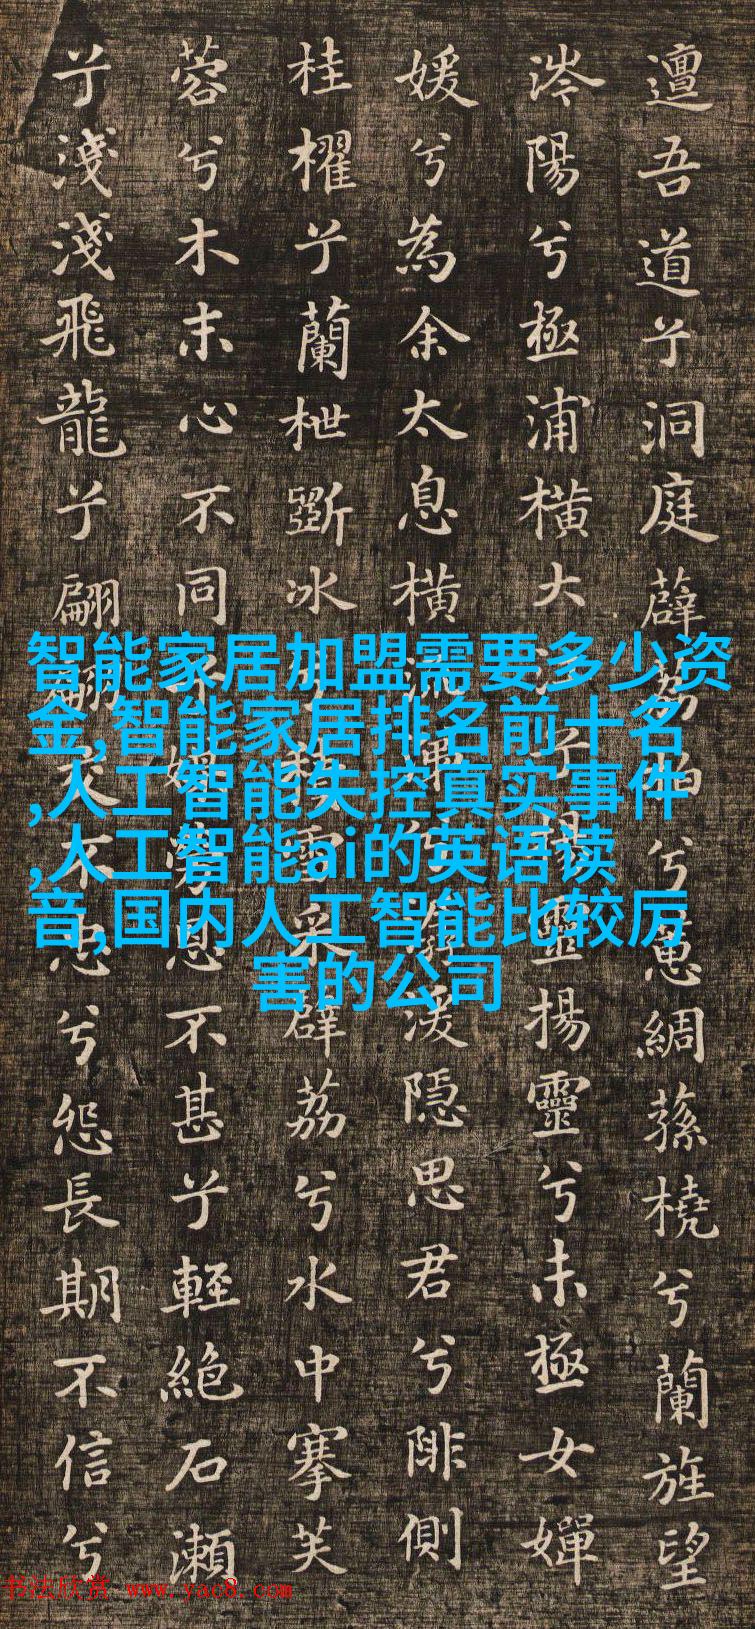 邅吾道兮洞庭薜荔柏兮蕙綢蓀橈兮蘭旌望
涔陽兮極浦橫大江兮揚靈揚靈兮未極女嬋
媛兮為余太息橫流涕兮潺湲隱思君兮陫側
桂櫂兮蘭枻斲冰兮積雪采薜荔兮水中搴芙
蓉兮木末心不同兮媒勞恩不甚兮輕絕石瀨
兮淺淺飛龍兮翩翩交不忠兮怨長期不信兮
智能家居加盟需要多少资
金,智能家居排名前十名
,人工智能失控真实事件
,人工智能ai的英语读
音,国内人工智能比较厉
害的公司
书法欣赏 www.yac8.com